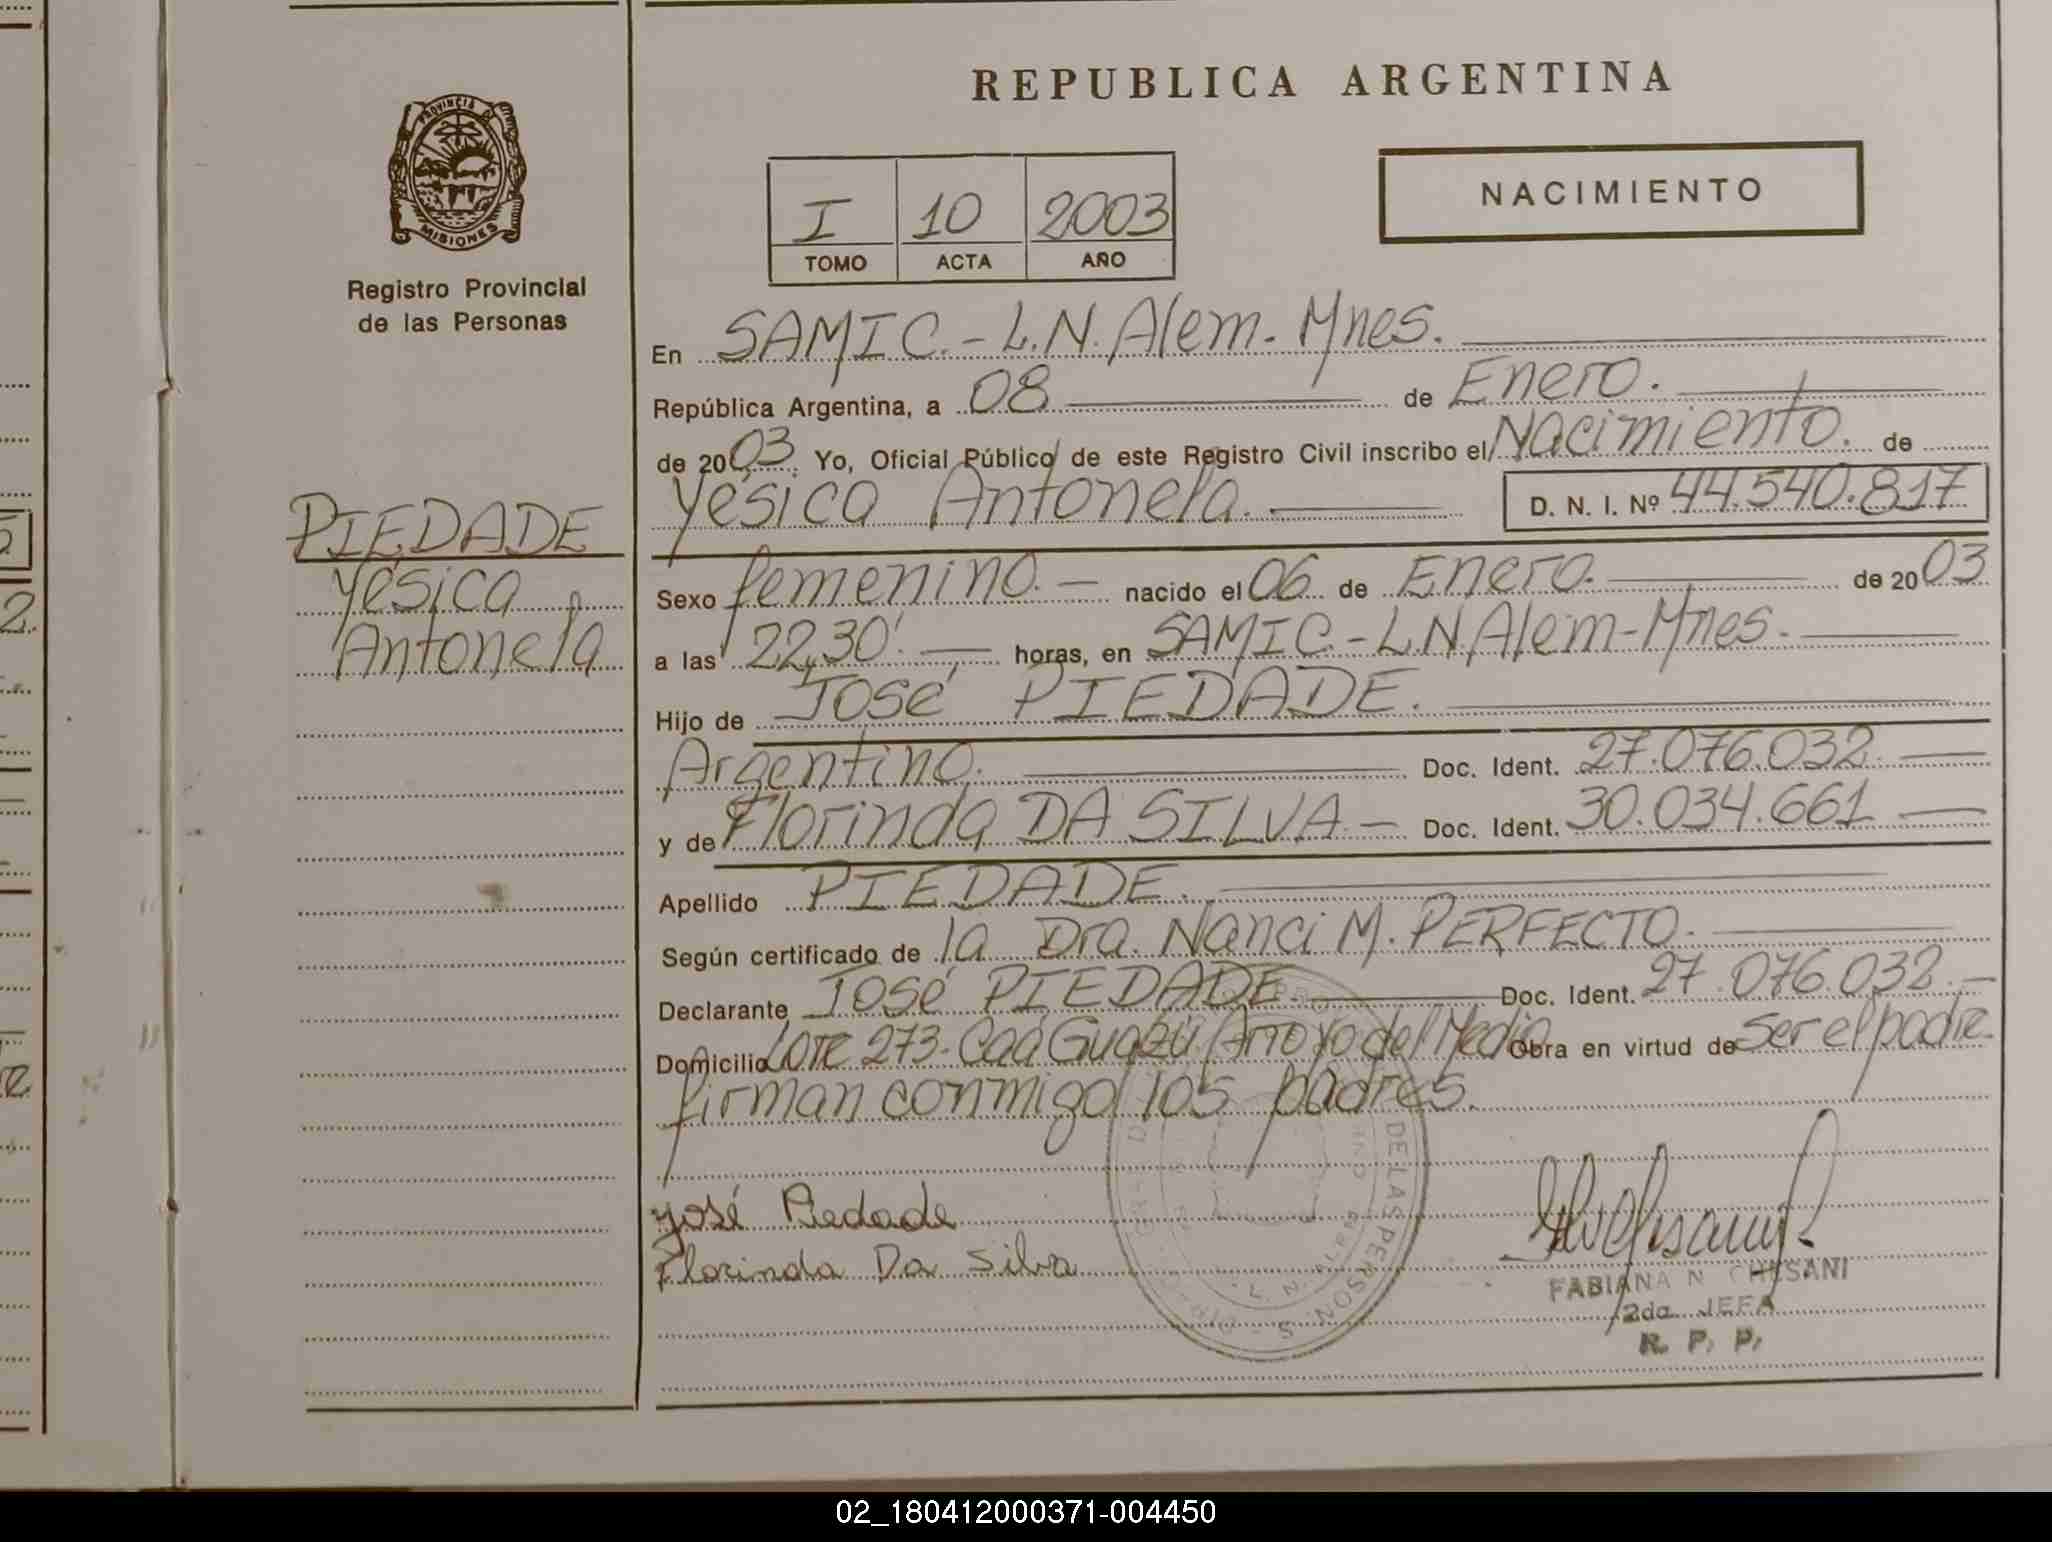 REPUBLICA ARGENTINA
PROVINCIA DE
MISIONES
Registro Provincial
de las Personas
I 10 2003
TOMO ACTA AÑO
NACIMIENTO
En SAMIC.- L.N. Alem.- Mnes.
República Argentina, a 08 de Enero.
de 2003. Yo, Oficial Público de este Registro Civil inscribo el Nacimiento. de
Yésica Antonela. D. N. I. Nº 44.540.817
PIEDADE
Yésica
Antonela
Sexo femenino.- nacido el 06 de Enero. de 2003
a las 22,30'. horas, en SAMIC.-L.N.Alem-Mnes.
Hijo de José PIEDADE.
Argentino. Doc. Ident. 27.076.032.
y de Florinda DA SILVA.- Doc. Ident. 30.034.661
Apellido PIEDADE.
Según certificado de la Dra. Nanci M. PERFECTO.
Declarante José PIEDADE. Doc. Ident. 27.076.032.-
Domicilio Lote 273- Caá Guazú/Arroyo del Medio Obra en virtud de ser el padre.
firman conmigo los padres.
José Piedade
Florinda Da Silva
DE LAS PERSON S
L. N. ALEM
FABIANA N CHESANI
2da JEFA
R. P. P.
02_180412000371-004450